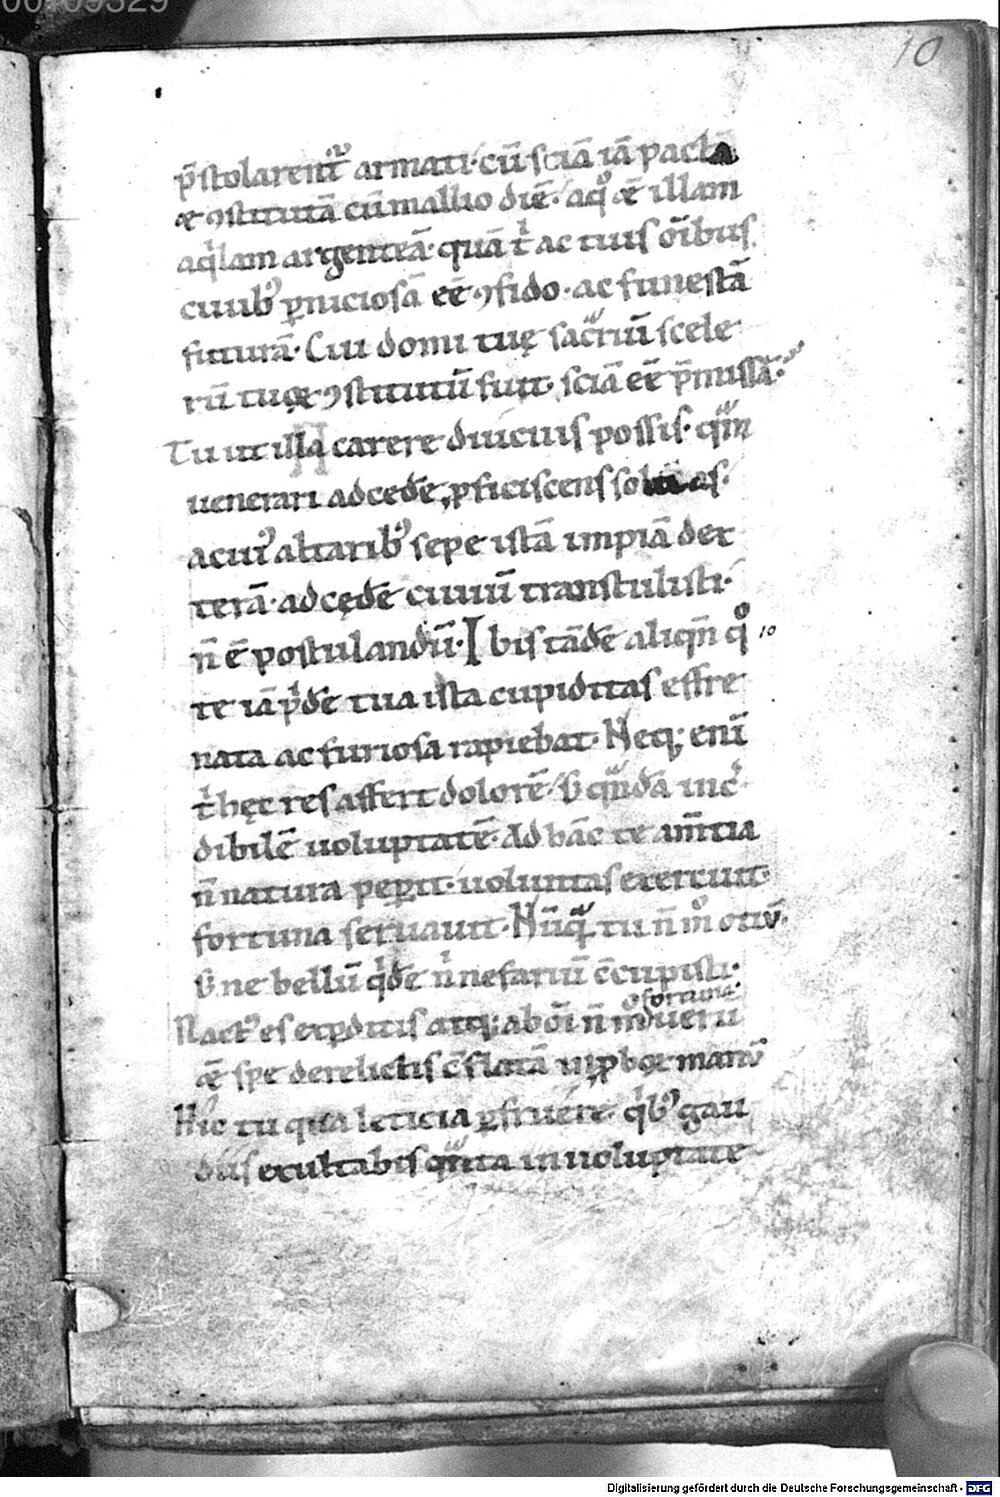 00109329
10
p̄stolarent᷑ armati· cū sciā iā pacta
⁊ ꝯstitutā cū mallio diē· a q̊ ⁊ illam
aqͥlam argenteā· quā tͥ ac tuis oīb;
ciuib᷒ ꝑniciosā eē ꝯfido· ac funestā
futurā· Cui domi tuę sacͣriū scele
rū tuoꝝ ꝯstitutū fuit· sciā eē p̄missā·
Tu ut illa carere diucius possis· qͣm
uenerari ad cedē ꝓficiscens sol as·
a cui᷒ altarib᷒ sepe istā impiā dex
terā· ad cędē ciuiū transtulisti·
n̄ ē postulandū· Ibis tādē aliqn̄ q̊
10
te iā pͥdē tua ista cupiditas effre
nata ac furiosa rapiebat· Neq; enī
tͥ hęc res affert dolorē· ẜ qͣndā inc͛
dibilē uoluptatē· Ad hāc te am̄tia
n̄ natura peꝑit· uoluntas exercuit·
fortuna seruauit· Nūqͣ tu n̄ m̊ otiū·
ẜ ne bellū qͥdē nͥ nefariū c̄cupisti·
fortuna·
Nact᷒ es ex ꝑditis atq; ab oī n̄ m̊ ueru
⁊ spe derelictis c̄flatā inꝓboꝝ manū
Hic tu qua leticia ꝑfruere· qͥb᷒ gau
diis exultabis qͣnta in uoluptate
Digitalisierung gefördert durch die Deutsche Forschungsgemeinschaft - DFG